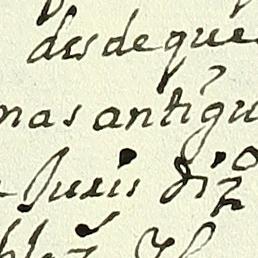 desde que
mas antigu
Juris diz